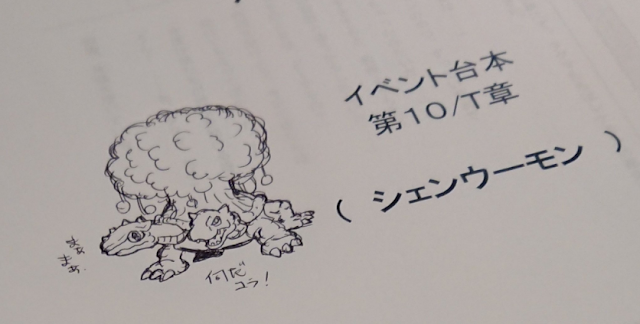 イベント台本
第10/T章
( シェンウーモン )
まぁ
まぁ.
何だ
コラ!